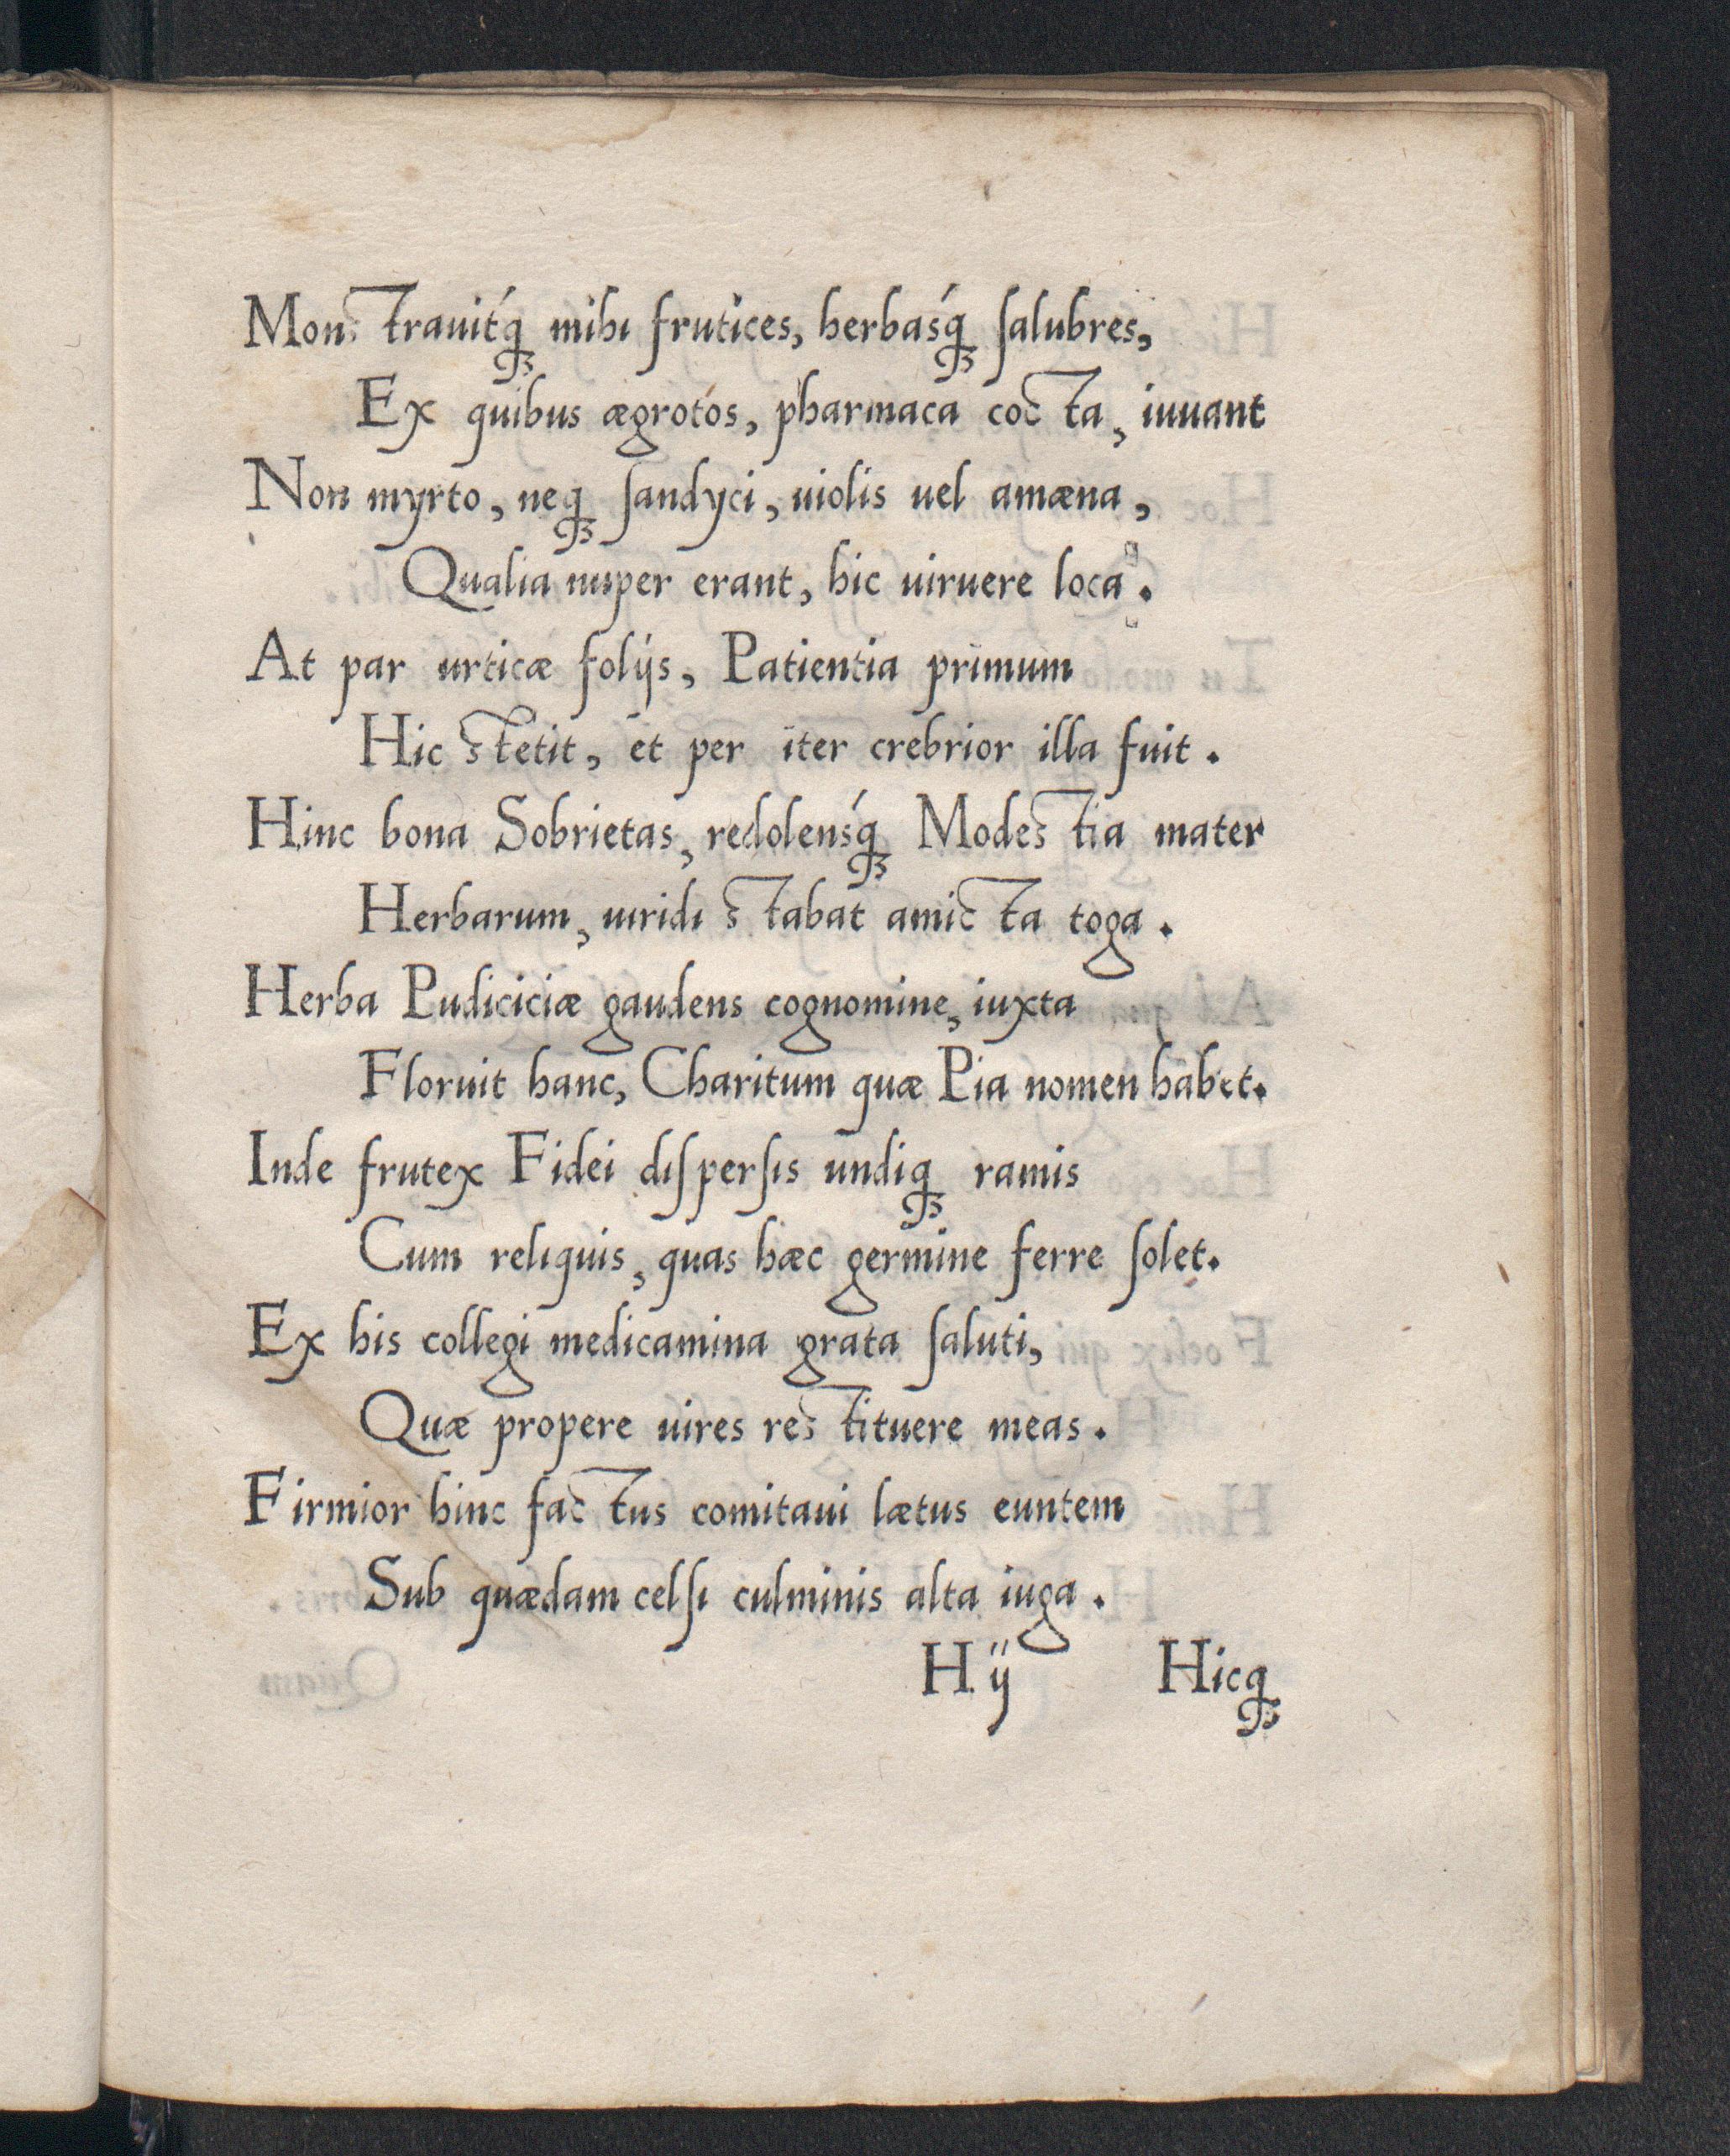 Monstrauitq́ꝫ mihi frutices, herbasq́ꝫ ſalubres,
Ex quibus ægrotos, pharmaca cocta, iuuant
Non myrto, neqꝫ ſandyci, uiolis uel amæna,
Qualia nuper erant, hic uiruere loca.
At par urticæ folijs, Patientia primum
Hic stetit, et per iter crebrior illa fuit.
Hinc bona Sobrietas, redolensq́ꝫ Modestia mater
Herbarum, uiridi stabat amicta toga.
Herba Pudiciciæ gaudens cognomine, iuxta
Floruit hanc, Charitum quæ Pia nomen habet.
Inde frutex Fidei diſperſis undiqꝫ ramis
Cum reliquis, quas hæc germine ferre ſolet.
Ex his collegi medicamina grata ſaluti,
Quæ propere uires restituere meas.
Firmior hinc factus comitaui lætus euntem
Sub quædam celſi culminis alta iuga.
H ij Hicqꝫ